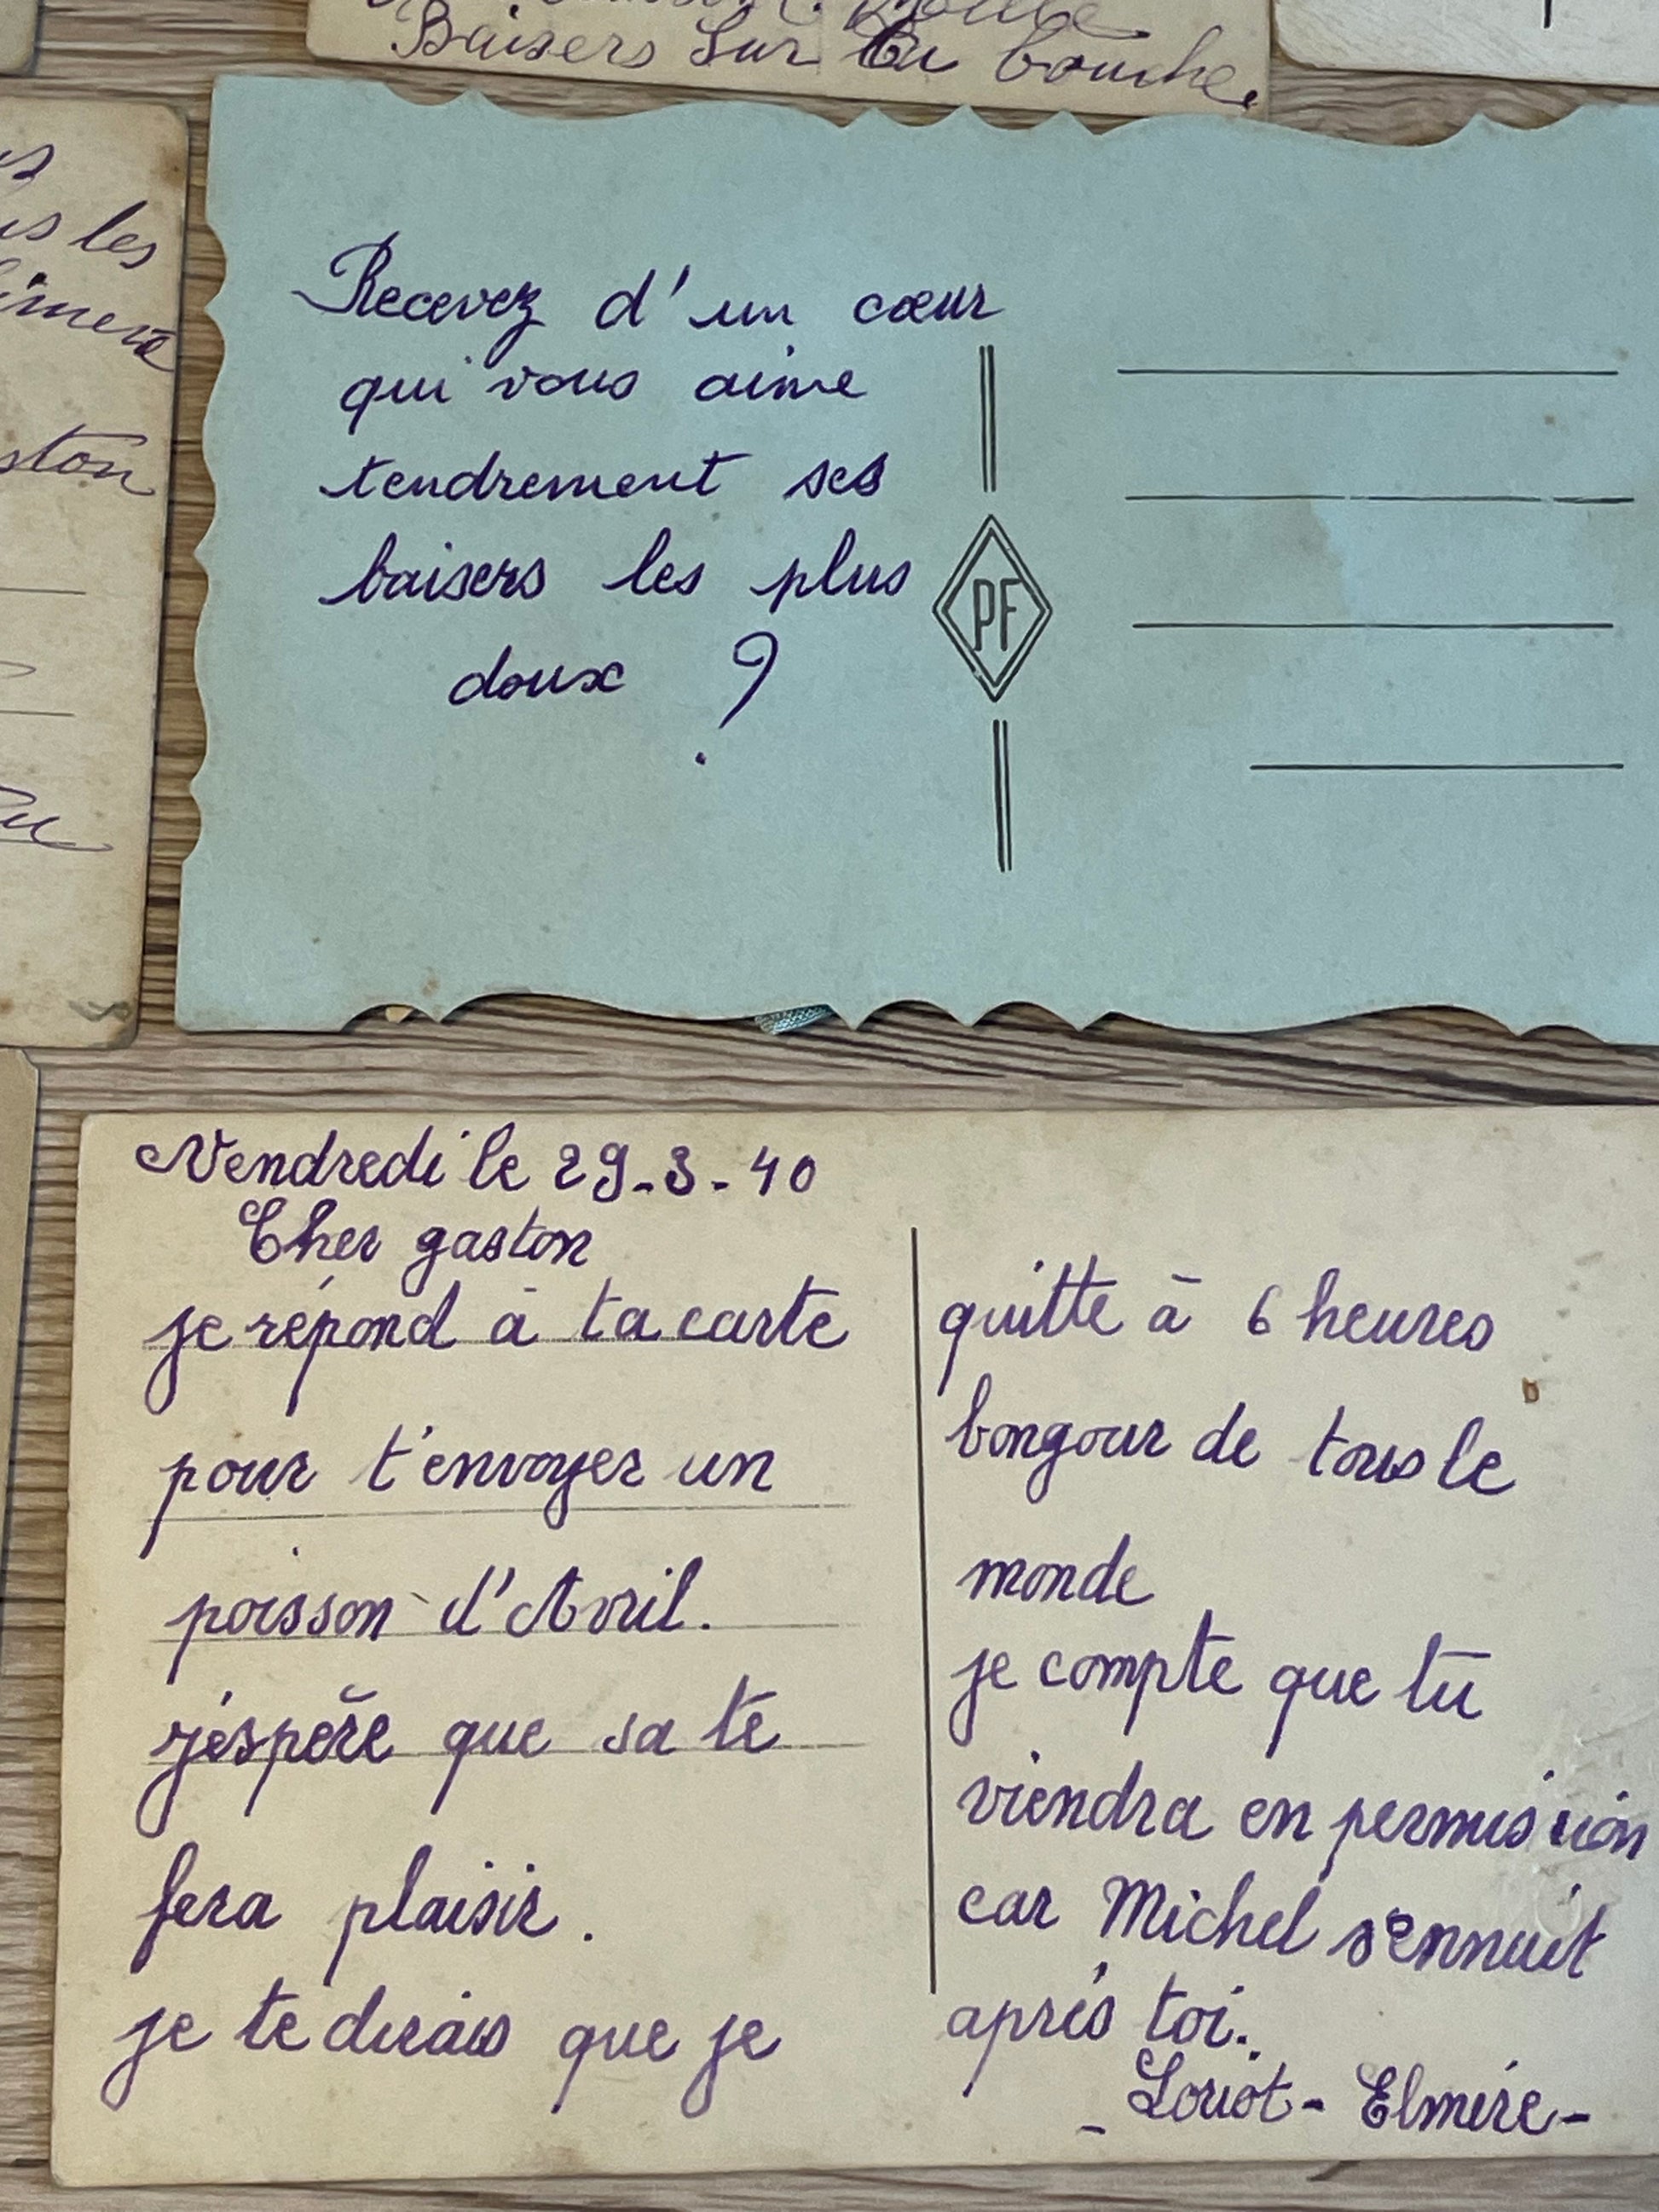 Baisers Sur la bouche
les
ston
Recevez d'un cœur
qui vous aime
tendrement ses
baisers les plus
doux ?
PF
Vendredi le 29-3-40
Cher gaston
je répond à ta carte
pour t'envoyer un
poisson d'Avril.
j'éspère que sa te
fera plaisir.
je te dirais que je
quitte à 6 heures
bongour de tous le
monde
je compte que tu
viendra en permission
car Michel s'ennuit
aprés toi.
- Loriot - Elmire -